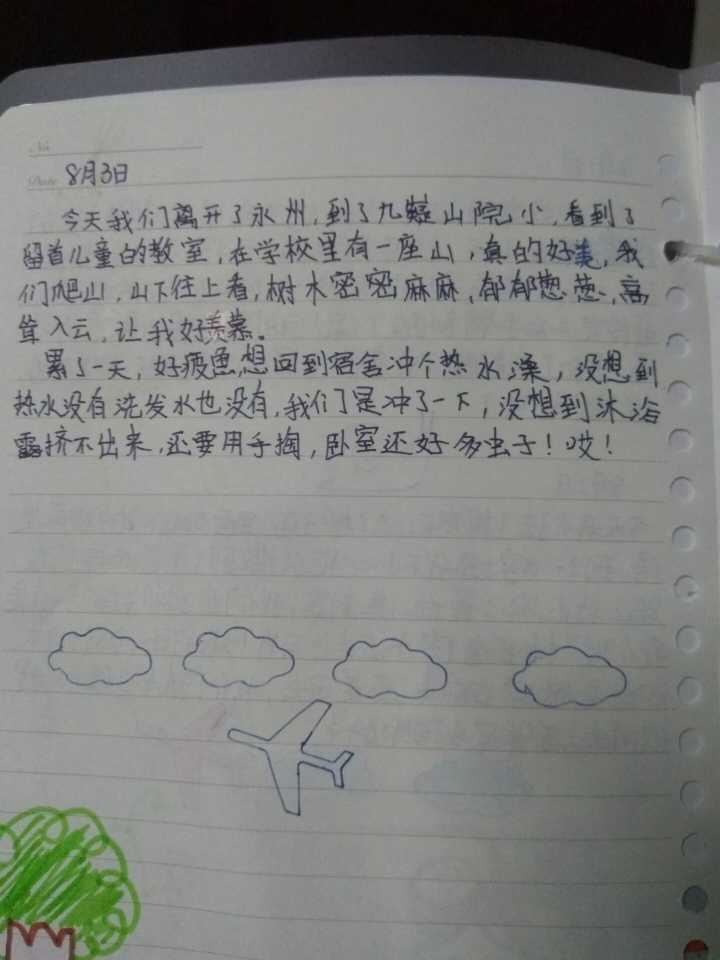 No.
Date 8月3日
今天我们离开了永州,到了九嶷山完小,看到了
留首儿童的教室,在学校里有一座山,真的好美,我
们爬山,山下往上看,树木密密麻麻,郁郁葱葱,高
耸入云,让我好羡慕。
累了一天,好疲惫,想回到宿舍冲个热水澡,没想到
热水没有洗发水也没有,我们于是冲了一下,没想到沐浴
露挤不出来,还要用手掏,卧室还好多虫子!哎!